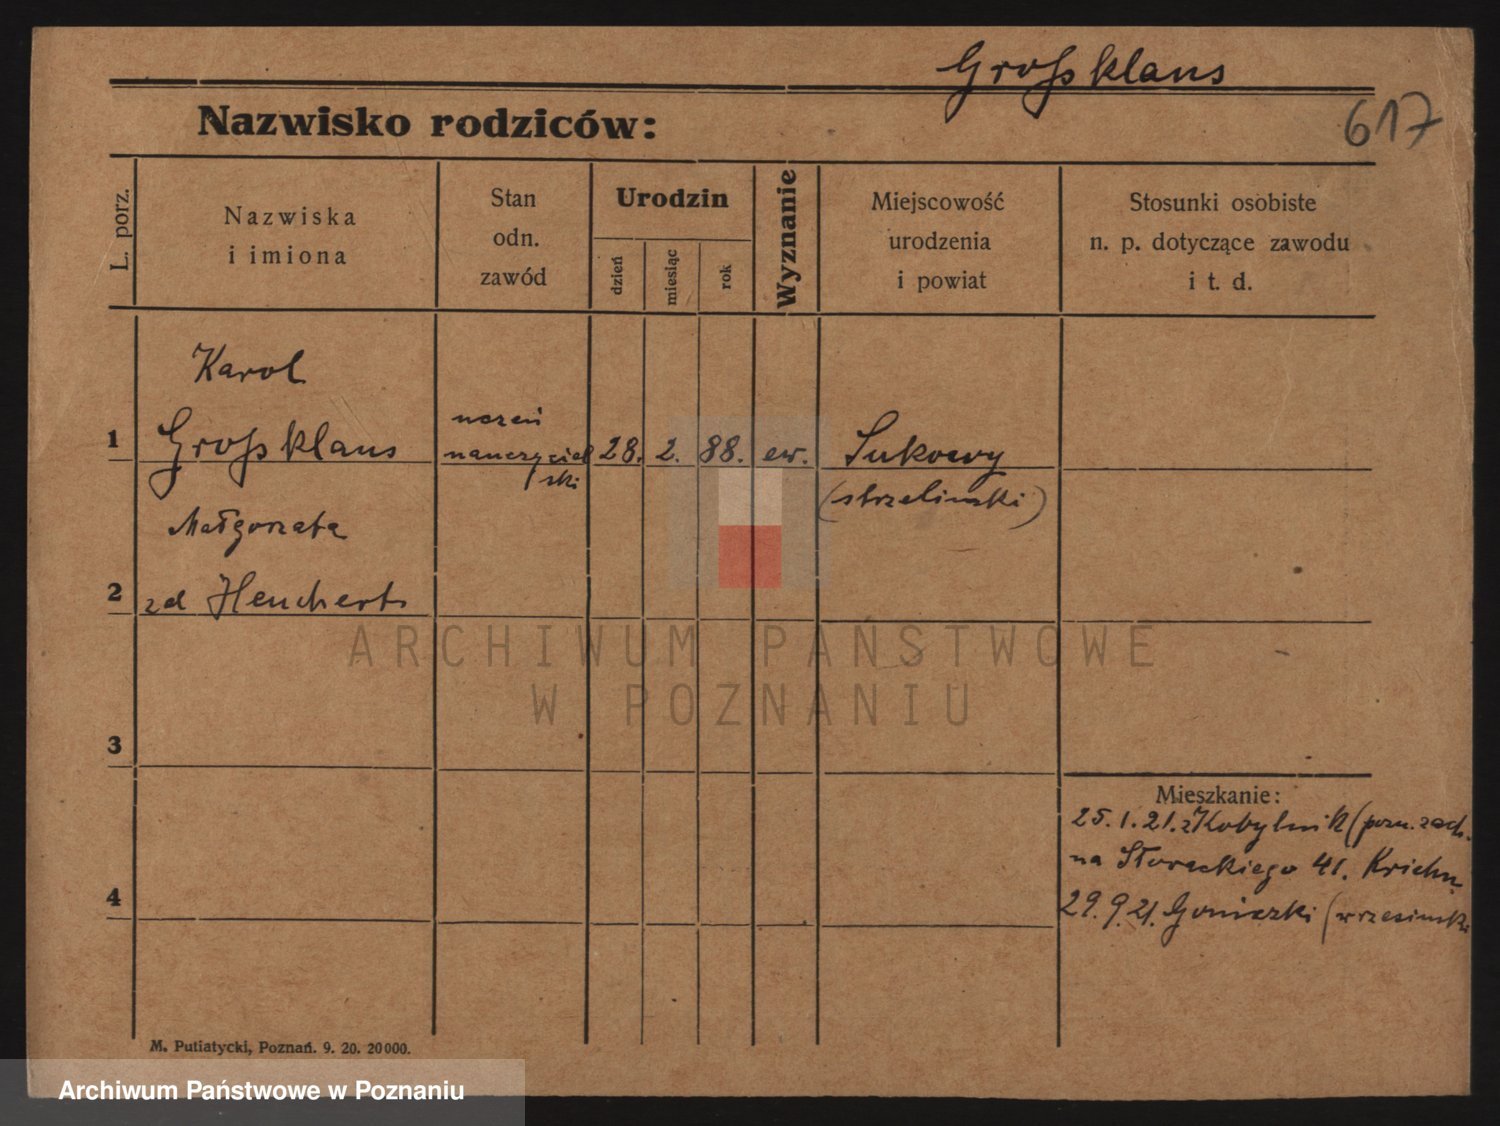 Großklaus
617
Nazwisko rodziców:
L. porz.
Nazwiska
i imiona
Stan
odn.
zawód
Urodzin
dzień
miesiąc
rok
Wyznanie
Miejscowość
urodzenia
i powiat
Stosunki osobiste
n. p. dotyczące zawodu
i t. d.
Karol
1 Großklaus uczeń nauczycielski 28. 2. 88. ew. Sukowy
(strzeliński)
Małgorzata
2 zd Heucherts
ARCHIWUM PAŃSTWOWE
W POZNANIU
3
Mieszkanie:
25.1.21. z Kobylnik (pozn. zach.
na Słowackiego 41. Krichn
4
29.9.21. Goniczki (wrzesiński
M. Putiatycki, Poznań. 9. 20. 20000.
Archiwum Państwowe w Poznaniu